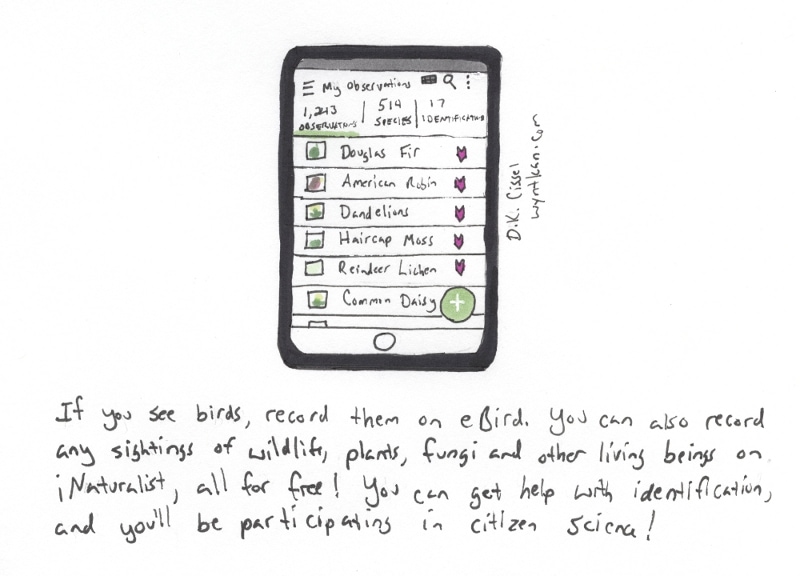 My Observations
1,243 | 514 | 17
OBSERVATIONS SPECIES IDENTIFICATIONS
Douglas Fir
American Robin
Dandelions
Haircap Moss
Reindeer Lichen
Common Daisy
+
D.K. Cissel
wyntkan.com
If you see birds, record them on eBird. You can also record
any sightings of wildlife, plants, fungi and other living beings on
iNaturalist, all for free! You can get help with identification,
and you'll be participating in citizen science!